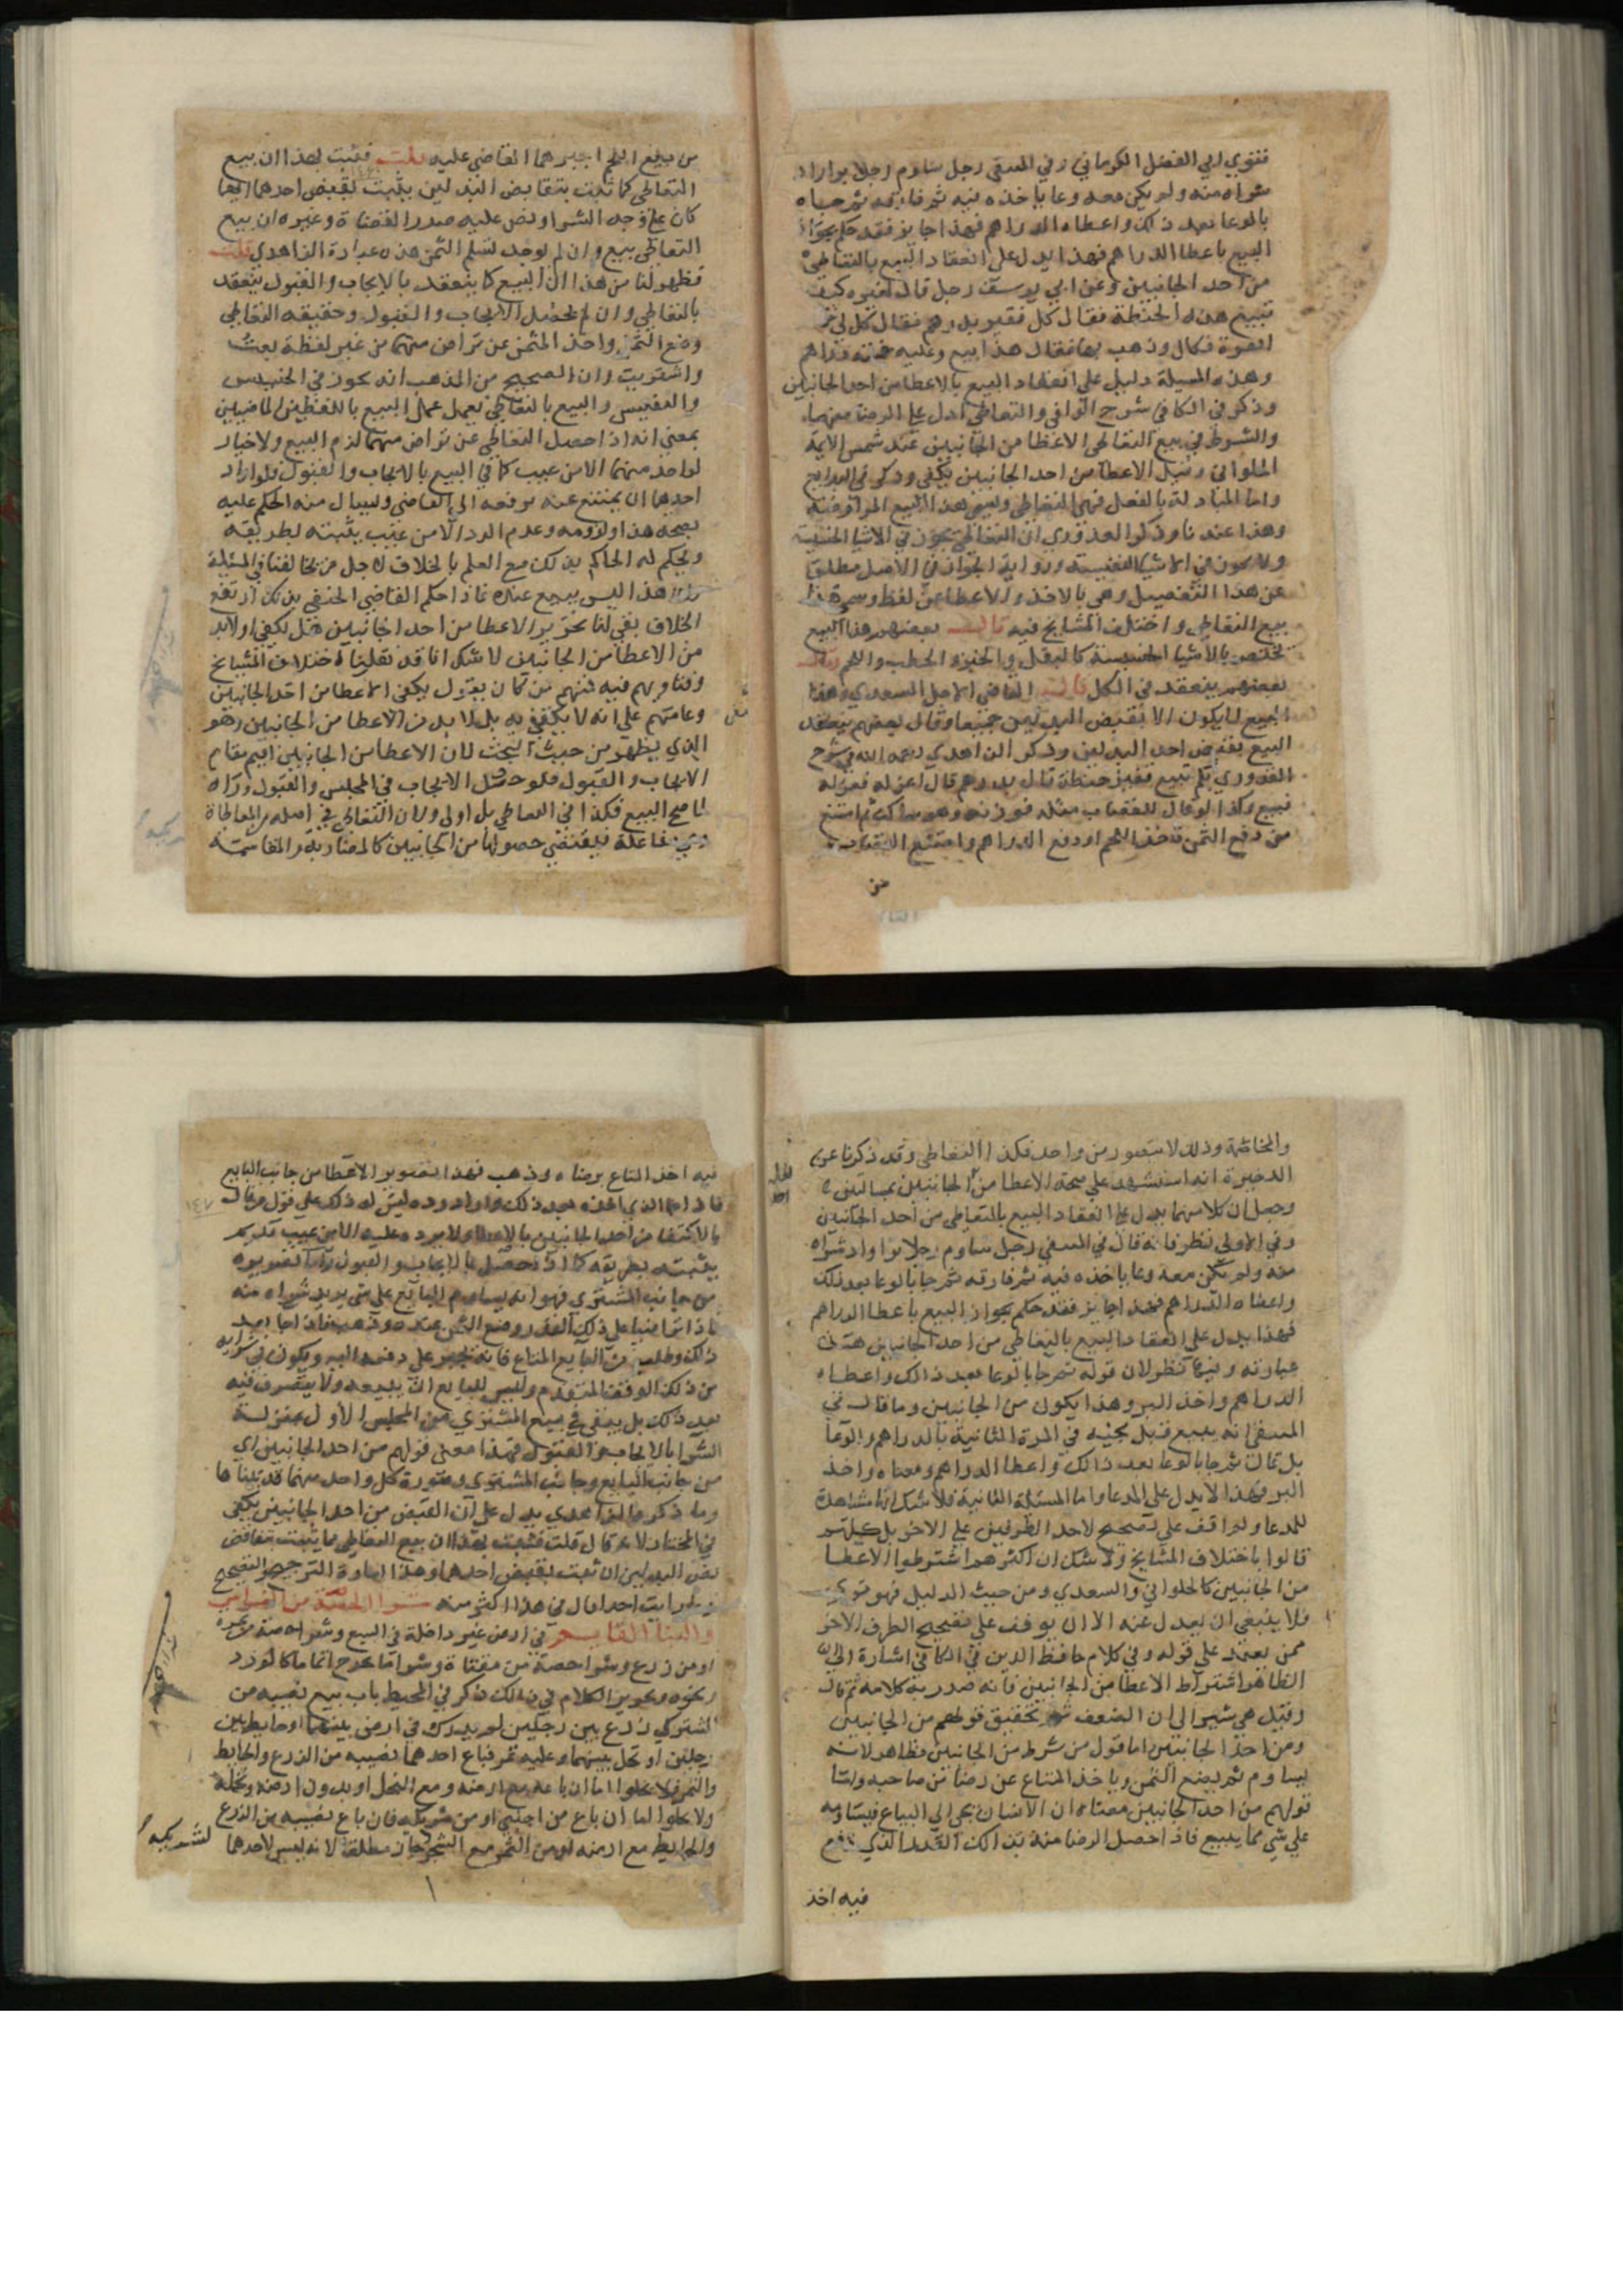 فتوي ابي الفضل الكرماني وفي المنتقى رجل ساوم رجلا برا واراد
شراه منه ولم يكن معه وعا ياخذه فيه ثم فارقه ثم جاه
بالوعا بعد ذلك واعطاه الدراهم فهذا جايز فقد حكم بجواز
البيع باعطا الدراهم فهذا يدل على انعقاد البيع بالتعاطي
من احد الجانبين وعن ابي يوسف رجل قال لغيره كيف
تبيع هذه الحنطة فقال كل قفيز بدرهم فقال كل لي خمسة
اقفزة فكال وذهب بها فقال هذا بيع وعليه خمسة دراهم
وهذه المسيلة دليل على انعقاد البيع بالاعطا من احد الجانبين
وذكر في الكافي شرح الوافي والتعاطي ادل على الرضا منهما
والشرط في بيع التعاطي الاعطا من الجانبين عند شمس الايمة
الحلواني وقيل الاعطا من احد الجانبين يكفي وذكر في البدايع
واما المبادلة بالفعل فهي التعاطي ويسمى هذا البيع المراوضة
وهذا عندنا وذكر القدوري ان التعاطي يجوز في الاشيا الخسيسة
ولا يجوز في الاشيا النفيسة ورواية الجواز في الاصل مطلق
عن هذا التفصيل وهي بالاخذ والاعطا من لفظ وسمى هذا
بيع التعاطي واختلف المشايخ فيه قال بعضهم هذا البيع
يختص بالاشيا الخسيسة كالبقل والخبز والحطب واللحم وقال
بعضهم ينعقد في الكل قال القاضي الامام السعدي وهذا
البيع لا يكون الا بقبض البدلين جميعا وقال بعضهم ينعقد
البيع بقبض احد البدلين وذكر الزاهدي رحمه الله في شرح
القدوري بكم تبيع قفيز حنطة قال بدرهم قال اعزله فعزله
فبيع وكذا لو قال للقصاب مثله فوزنه وهو ساكت ثم امتنع
من دفع الثمن واخذ اللحم او دفع الدراهم وامتنع القصاب
من
من دفع اللحم اجبرهما القاضي عليه قلت فثبت بهذا ان بيع
التعاطي كما ثبت بتقابض البدلين يثبت بقبض احدهما ايهما
كان على وجه الشرا ونص عليه صدر القضاة وغيره ان بيع
التعاطي بيع وان لم يوجد تسلم الثمن هذه عبارة الزاهدي قلت
فظهر لنا من هذا ان البيع كما ينعقد بالايجاب والقبول ينعقد
بالتعاطي وان لم يحصل الايجاب والقبول وحقيقة التعاطي
وضع الثمن واخذ المثمن عن تراض منهما من غير لفظة بعت
واشتريت وان الصحيح من المذهب انه يجوز في الخسيس
والنفيس والبيع بالتعاطي يعمل عمل البيع باللفظين الماضيين
بمعنى انه اذا حصل التعاطي عن تراض منهما لزم البيع ولا خيار
لواحد منهما الا من عيب كما في البيع بالايجاب والقبول فلو اراد
احدهما ان يمتنع عنه يرفعه الى القاضي وليسال منه الحكم عليه
بصحة هذا ولزومه وعدم الرد الا من عيب يثبته بطريقه
ويحكم له الحاكم بذلك مع العلم بالخلاف لاجل من يخالفنا في المسيلة
هذا ليس ببيع عنده فاذا حكم القاضي الحنفي بذلك ارتفع
الخلاف بقي لنا تحرير الاعطا من احد الجانبين هل يكفي او لا بد
من الاعطا من الجانبين لا شك انا قد نقلنا اختلاف المشايخ
وفتاويهم فيه فمنهم من كان يقول يكفي الاعطا من احد الجانبين
وعامتهم على انه لا يكتفي به بل لا بد من الاعطا من الجانبين وهو
الذي يظهر من حيث البحث لان الاعطا من الجانبين اقيم مقام
الايجاب والقبول فلو حصل الايجاب في المجلس والقبول وراه
لما صح البيع فكذا في التعاطي بل اولى ولان التعاطي في اصله المعاطاة
وهي مفاعلة فيقتضي حصولها من الجانبين كالمضاربة والمقاسمة
والمخاصمة وذلك لا يتصور من واحد فكذا التعاطي وقد ذكرنا عن
الدخيرة انه استشهد على صحة الاعطا من الجانبين بمسالتين
وجعل ان كلا منهما يدل على انعقاد البيع بالتعاطي من احد الجانبين
وفي الاولى نظر فانه قال في المنتقى رجل ساوم رجلا برا واراد شراه
منه ولم يكن معه وعا ياخذه فيه ثم فارقه ثم جا بالوعا بعد ذلك
واعطاه الدراهم فهذا جايز فقد حكم بجواز البيع باعطا الدراهم
فهذا يدل على انعقاد البيع بالتعاطي من احد الجانبين هذه
عبارته وفيها نظر لان قوله ثم جا بالوعا بعد ذالك واعطاه
الدراهم واخذ البر وهذا يكون من الجانبين وما قال في
المنتقى انه يبيع قبل مجيه في المرة الثانية بالدراهم والوعا
بل قال ثم جا بالوعا بعد ذالك واعطا الدراهم ومعناه واخذ
البر فهذا لا يدل على المدعا واما المسئلة الثانية فلا شك انها شاهدة
للمدعا ولم اقف على تصحيح لاحد الطرفين على الاخر بل كلهم
قالوا باختلاف المشايخ ولا شك ان اكثرهم اشترطوا الاعطا
من الجانبين كالحلواني والسعدي ومن حيث الدليل فهو قوي
فلا ينبغي ان يعدل عنه الا ان يوقف على تصحيح الطرف الاخر
ممن يعتمد على قوله وفي كلام حافظ الدين في الكافي اشارة الى ان
الظاهر اشتراط الاعطا من الجانبين فانه صدر به كلامه ثم قال
وقيل هي تشير الى ان الضعف ثم تحقيق قولهم من الجانبين
ومن احد الجانبين اما قول من شرط من الجانبين فظاهر لانه
يساوم ثم يضع الثمن وياخذ المتاع عن رضا من صاحبه واما
قولهم من احد الجانبين معناه ان الانسان يجي الى البياع فيساومه
على شي مما يبيع فاذا حصل الرضا منه بذالك القدر الذي
فيه اخذ
فيه اخذ المتاع برضاه وذهب فهذا تصوير الاعطا من جانب البايع
فاذا جا الذي اخذه بعد ذلك واراد رده ليس له ذلك على قول من قال
بالاكتفا من احد الجانبين بالاعطا ولا يرده عليه الا من عيب قديم
يثبته بطريقه كما اذا حصل بالايجاب والقبول واما تصويره
من جانب المشتري فهو انه يساوم البايع على شي يريد شراه منه
فاذا اتفقا على ذلك القدر وضع الثمن عنده وذهب فاذا جا بعد
ذلك وطلب من البايع المتاع فانه يجبر على دفعه اليه ويكون في شرايه
من ذلك الوقت المتقدم وليس للبايع ان يبيعه ولا يتصرف فيه
بعد ذلك بل يبقى في بيع المشتري من المجلس الاول بمنزلة
الشرا بالايجاب والقبول فهذا معنى قولهم من احد الجانبين اي
من جانب البايع وجانب المشتري وصورة كل واحد منهما قد بيناها
وما ذكره الزاهدي يدل على ان القبض من احد الجانبين يكفي
في المختار لانه قال قلت فثبت بهذا ان بيع التعاطي كما يثبت بتقابض
البدلين يثبت بقبض احدهما وهذا العبارة الترجيح والتصحيح
وما رايت احدا قال في هذا اكثر منه شرا الحصة من الغراس
والبنا القايم في ارض غير داخلة في البيع وشراحصة من ثمرة
او من زرع وشرا حصة من مقتاة وشرا ما يخرج انما ما كالورد
ونحوه وتحرير الكلام في ذالك ذكر في المحيط باب بيع نصيبه من
المشترك زرع بين رجلين لم يدرك في ارض بينهما او حايط بين
رجلين او نخل بينهما وعليه ثمر فباع احدهما نصيبه من الزرع والحايط
والثمر فلا يخلوا اما ان باعه مع ارضه ومع النخل او بدون ارضه ونخله
ولا يخلوا اما ان باع من اجنبي او من شريكه فان باع نصيبه من الزرع
والحايط مع ارضه او من الثمر مع الشجر جاز مطلقا لانه ليس لاحدهما
لشريكه